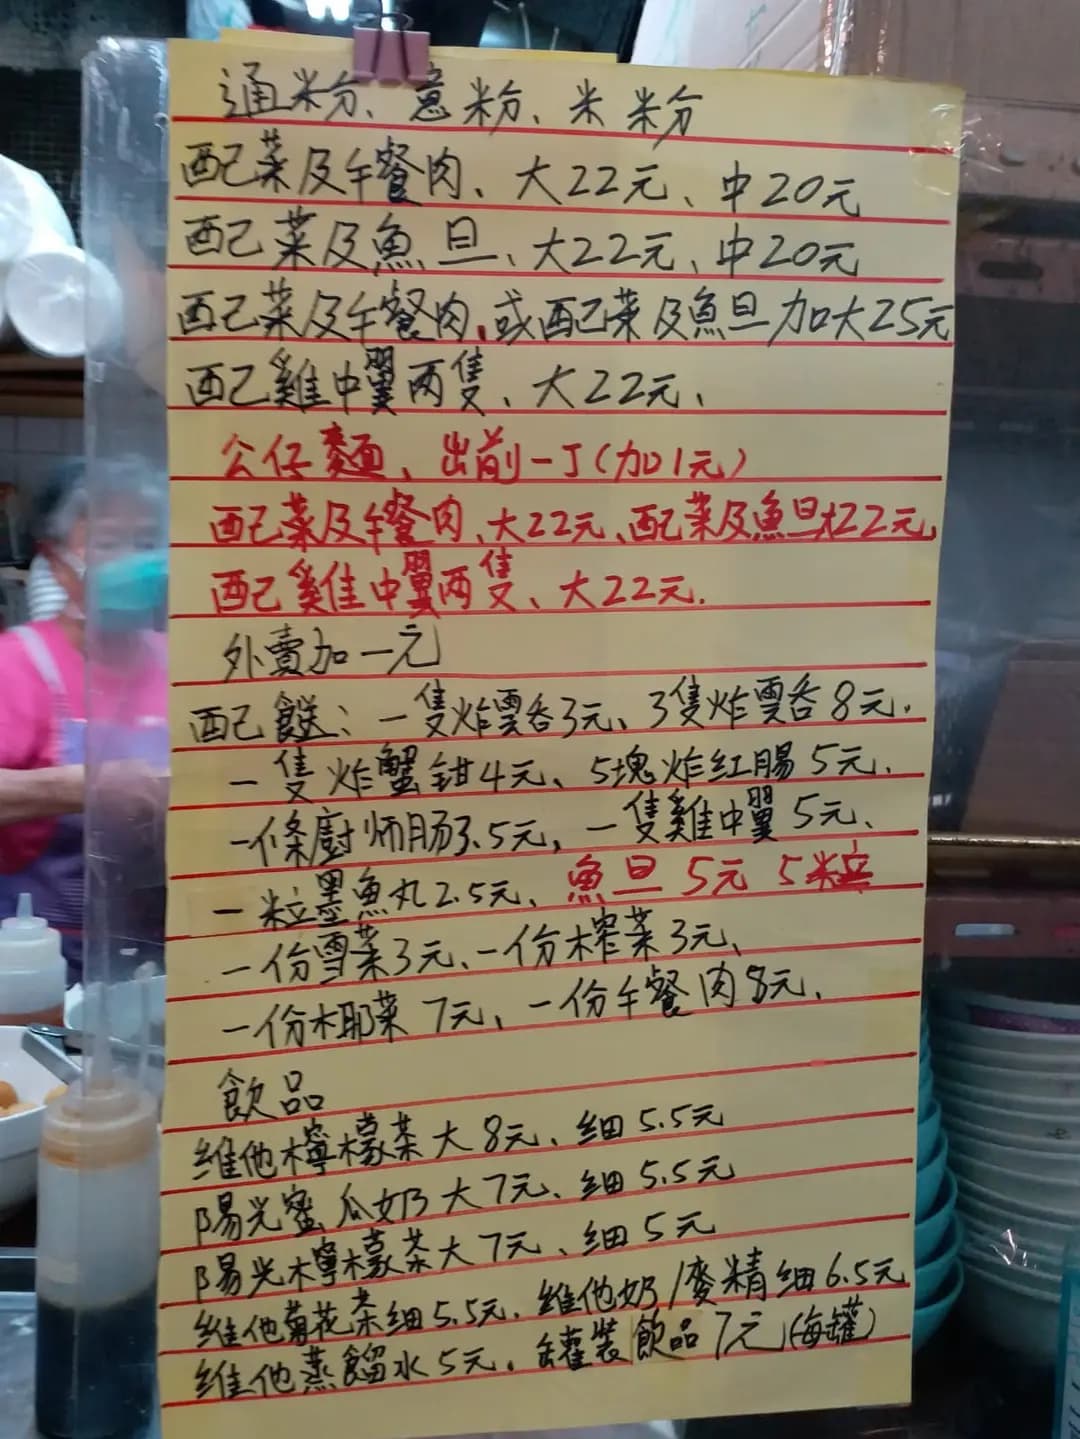 通粉、意粉、米粉
配菜及午餐肉、大22元、中20元
配菜及魚旦、大22元、中20元
配菜及午餐肉、或配菜及魚旦加大25元
配雞中翼两隻、大22元、
公仔麵、出前一丁(加1元)
配菜及午餐肉、大22元、配菜及魚旦大22元、
配雞中翼两隻、大22元.
外賣加一元
配餸：一隻炸雲吞3元、3隻炸雲吞8元.
一隻炸蟹钳4元、5塊炸红腸5元.
一條廚师肠3.5元，一隻雞中翼5元、
一粒墨魚丸2.5元、魚旦5元5粒
一份雪菜3元、一份榨菜3元、
一份椰菜7元、一份午餐肉8元、
飲品
維他檸檬茶大8元、細5.5元
陽光蜜瓜奶大7元、細5.5元
陽光檸檬茶大7元、細5元
維他菊花茶细5.5元.維他奶/麥精细6.5元
維他蒸餾水5元.罐裝飲品7元(每罐)